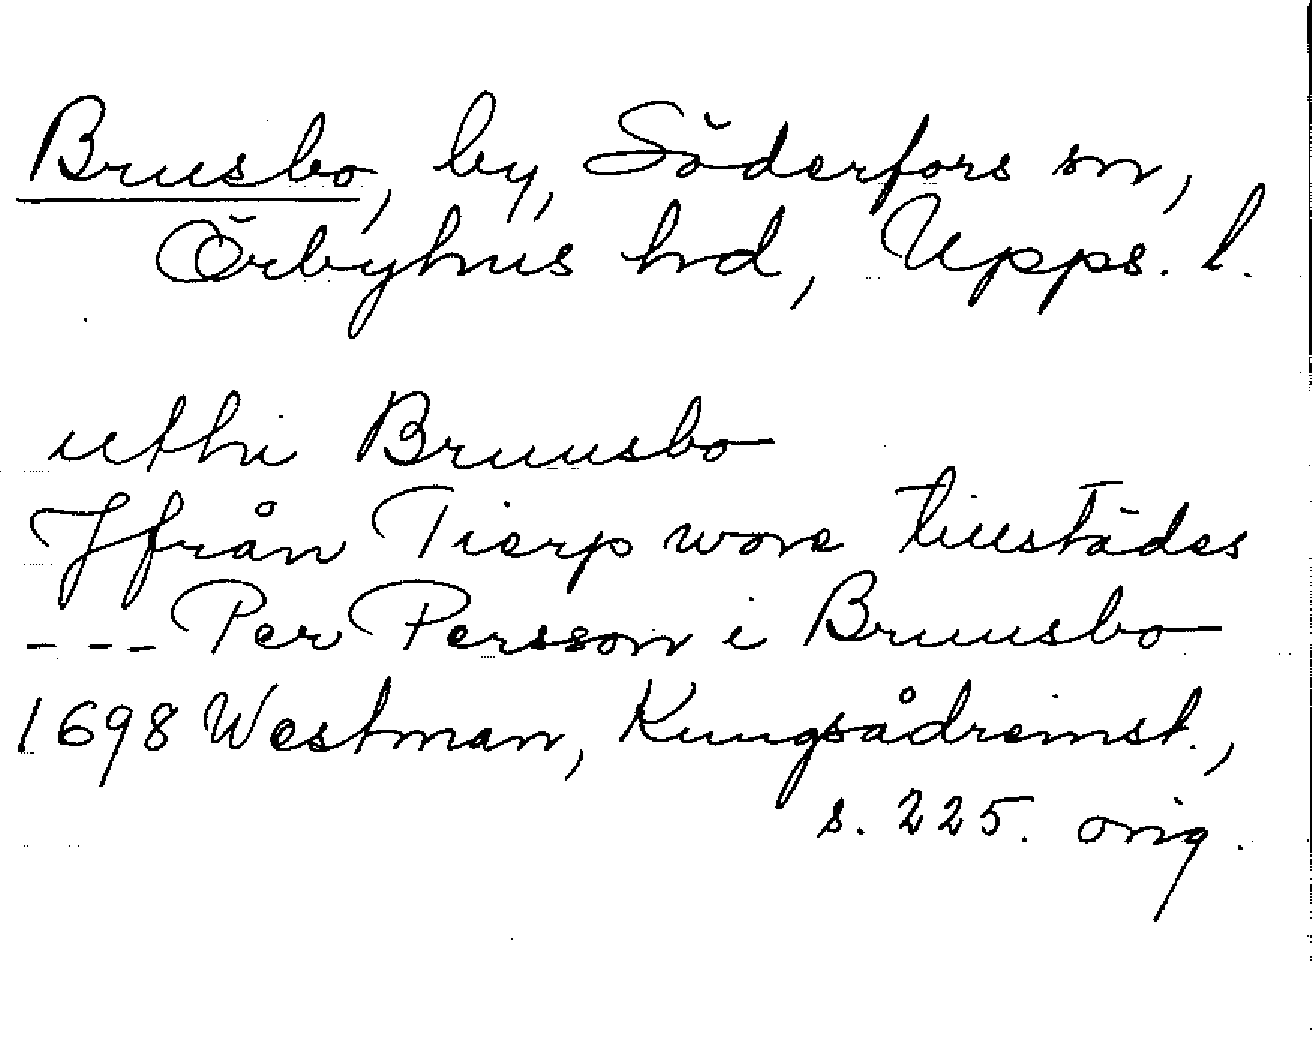 Brusbo, by, Söderfors sn,
Örbyhus hd, Upps. l.
uthi Bruusbo
Jfrån Tierp wore tillstädes
--- Per Persson i Bruusbo
1698 Westman, Kungsådreinst.,
s. 225. orig.